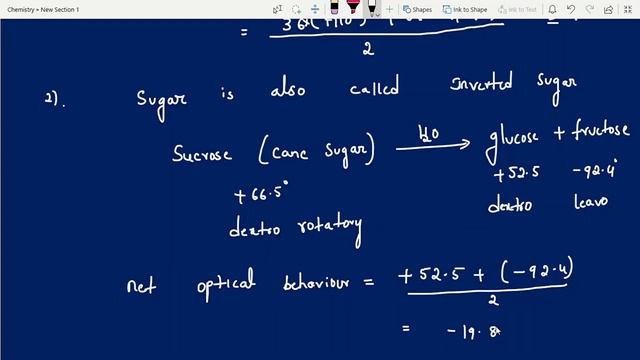 Chemistry > New Section 1
Shapes Ink to Shape Ink to Text Ink to Math
=
2
2). Sugar is also called Inverted Sugar
Sucrose (Cane Sugar) H2O → glucose + fructose
+66.5° +52.5 -92.4°
dextro rotatory dextro leavo
net optical behaviour = +52.5 + (-92.4)
2
= -19.8